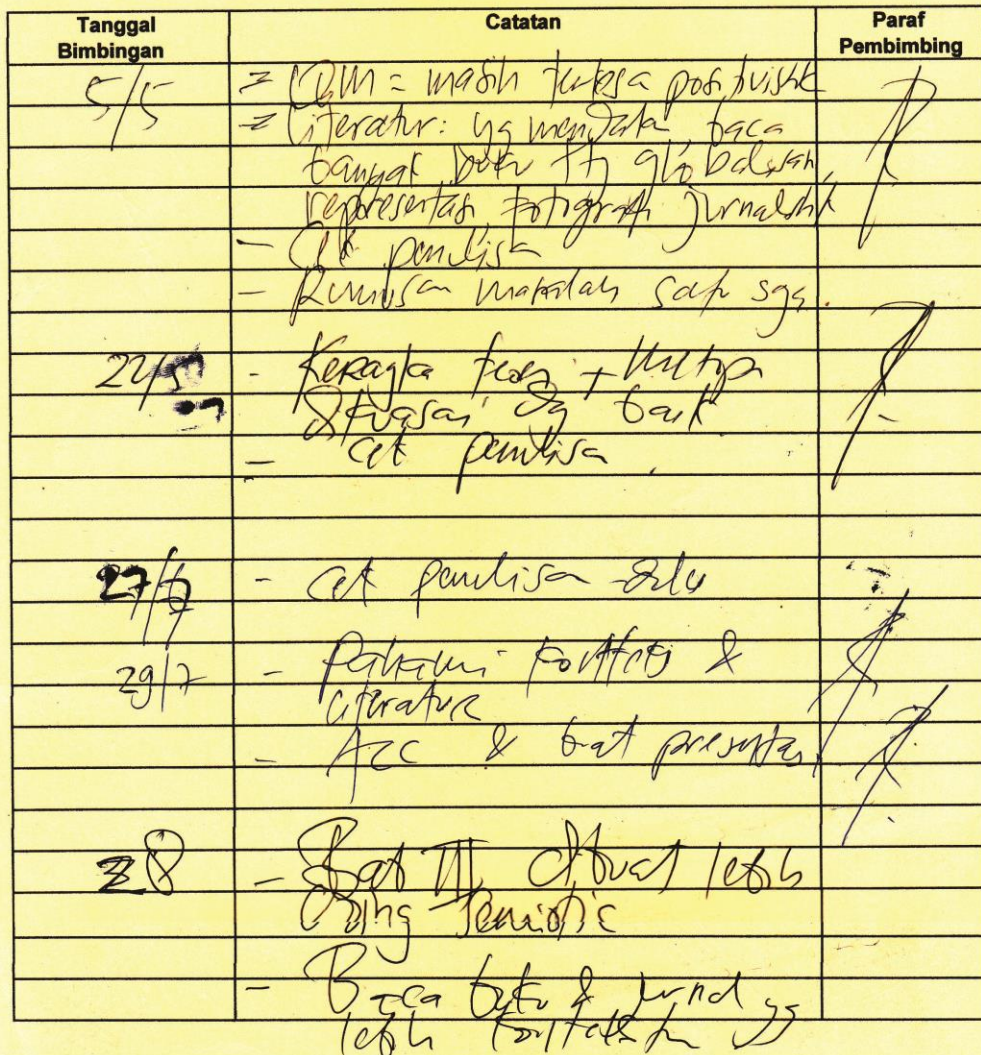 Tanggal Bimbingan Catatan Paraf Pembimbing
5/5 = masih terkesa positivistik
Literatur: yg mendata, baca
banyak buku ttg globalisasi,
representasi fotografi jurnalistik
- Cek penulisa
- Rumusan masalah satu sja.
22/5 - Keragka teori +
dikuasai dg baik
- Cek penulisa
27/ - Cek penulisa dulu
29/7 - Pahami konteks &
literatur
- ACC & buat presentasi
8 - Bab III dibuat lebih
semiotic
- Baca buku & jurnal yg
lebih